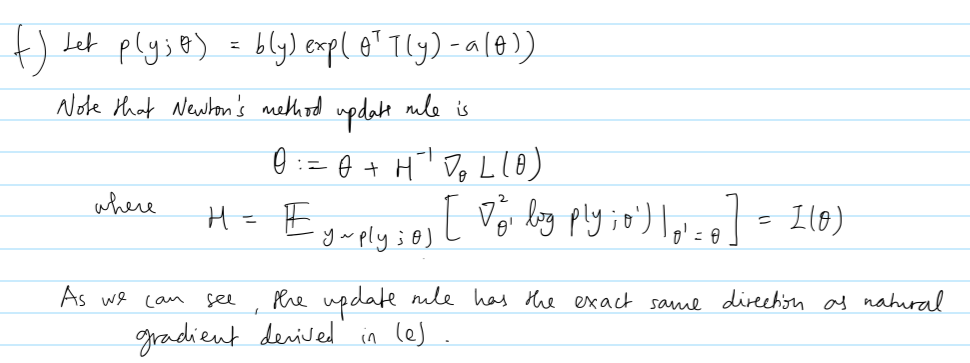 f) Let p(y;θ) = b(y) exp(θᵀT(y) - a(θ))
Note that Newton's method update rule is
θ := θ + H⁻¹ ∇_θ L(θ)
where H = 𝔼_{y~p(y;θ)} [∇²_{θ'} log p(y;θ')|_{θ'=θ}] = I(θ)
As we can see, the update rule has the exact same direction as natural
gradient derived in (e).